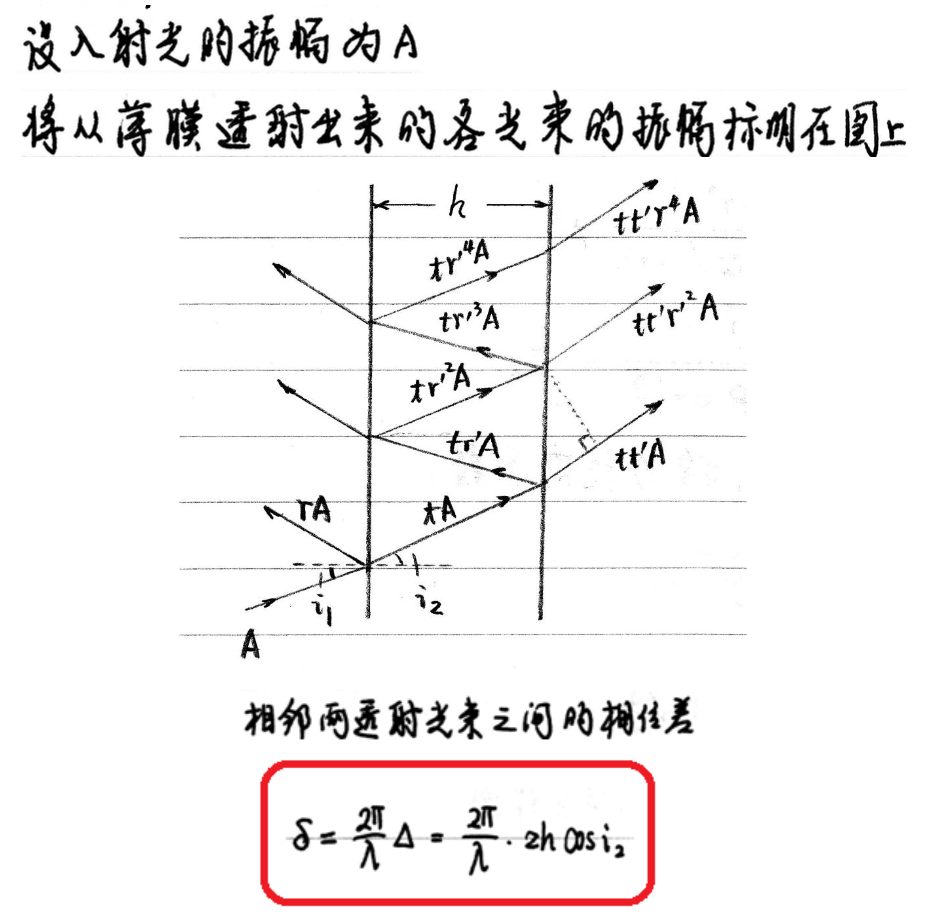 设入射光的振幅为A
将从薄膜透射出来的各光束的振幅标明在图上
h
tt'r⁴A
tr'⁴A
tr'³A
tt'r'²A
tr'²A
tr'A
tt'A
rA
tA
i₁
i₂
A
相邻两透射光束之间的相位差
δ = 2π/λ Δ = 2π/λ · 2h cos i₂